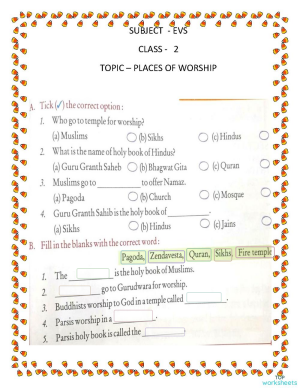 SUBJECT - EVS
CLASS - 2
TOPIC – PLACES OF WORSHIP
A. Tick (✓) the correct option :
1. Who go to temple for worship?
(a) Muslims (b) Sikhs (c) Hindus
2. What is the name of holy book of Hindus?
(a) Guru Granth Saheb (b) Bhagwat Gita (c) Quran
3. Muslims go to ________ to offer Namaz.
(a) Pagoda (b) Church (c) Mosque
4. Guru Granth Sahib is the holy book of ________.
(a) Sikhs (b) Hindus (c) Jains
B. Fill in the blanks with the correct word :
Pagoda, Zendavesta, Quran, Sikhs, Fire temple
1. The ________ is the holy book of Muslims.
2. ________ go to Gurudwara for worship.
3. Buddhists worship to God in a temple called ________.
4. Parsis worship in a ________.
5. Parsis holy book is called the ________.
TOP
worksheets